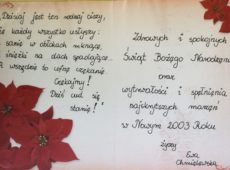 „Dzisiaj jest ten rodzaj ciszy,
że każdy wszystko usłyszy:
sanie w obłokach mknące,
śnieżki na dach spadające.
A wszędzie to ufne czekanie.
Czekajmy!
Dziś cud się
stanie!"
Zdrowych i spokojnych
Świąt Bożego Narodzenia
oraz
wytrwałości i spełnienia
najskrytszych marzeń
w Nowym 2003 Roku
życzy
Ewa
Chmielewska